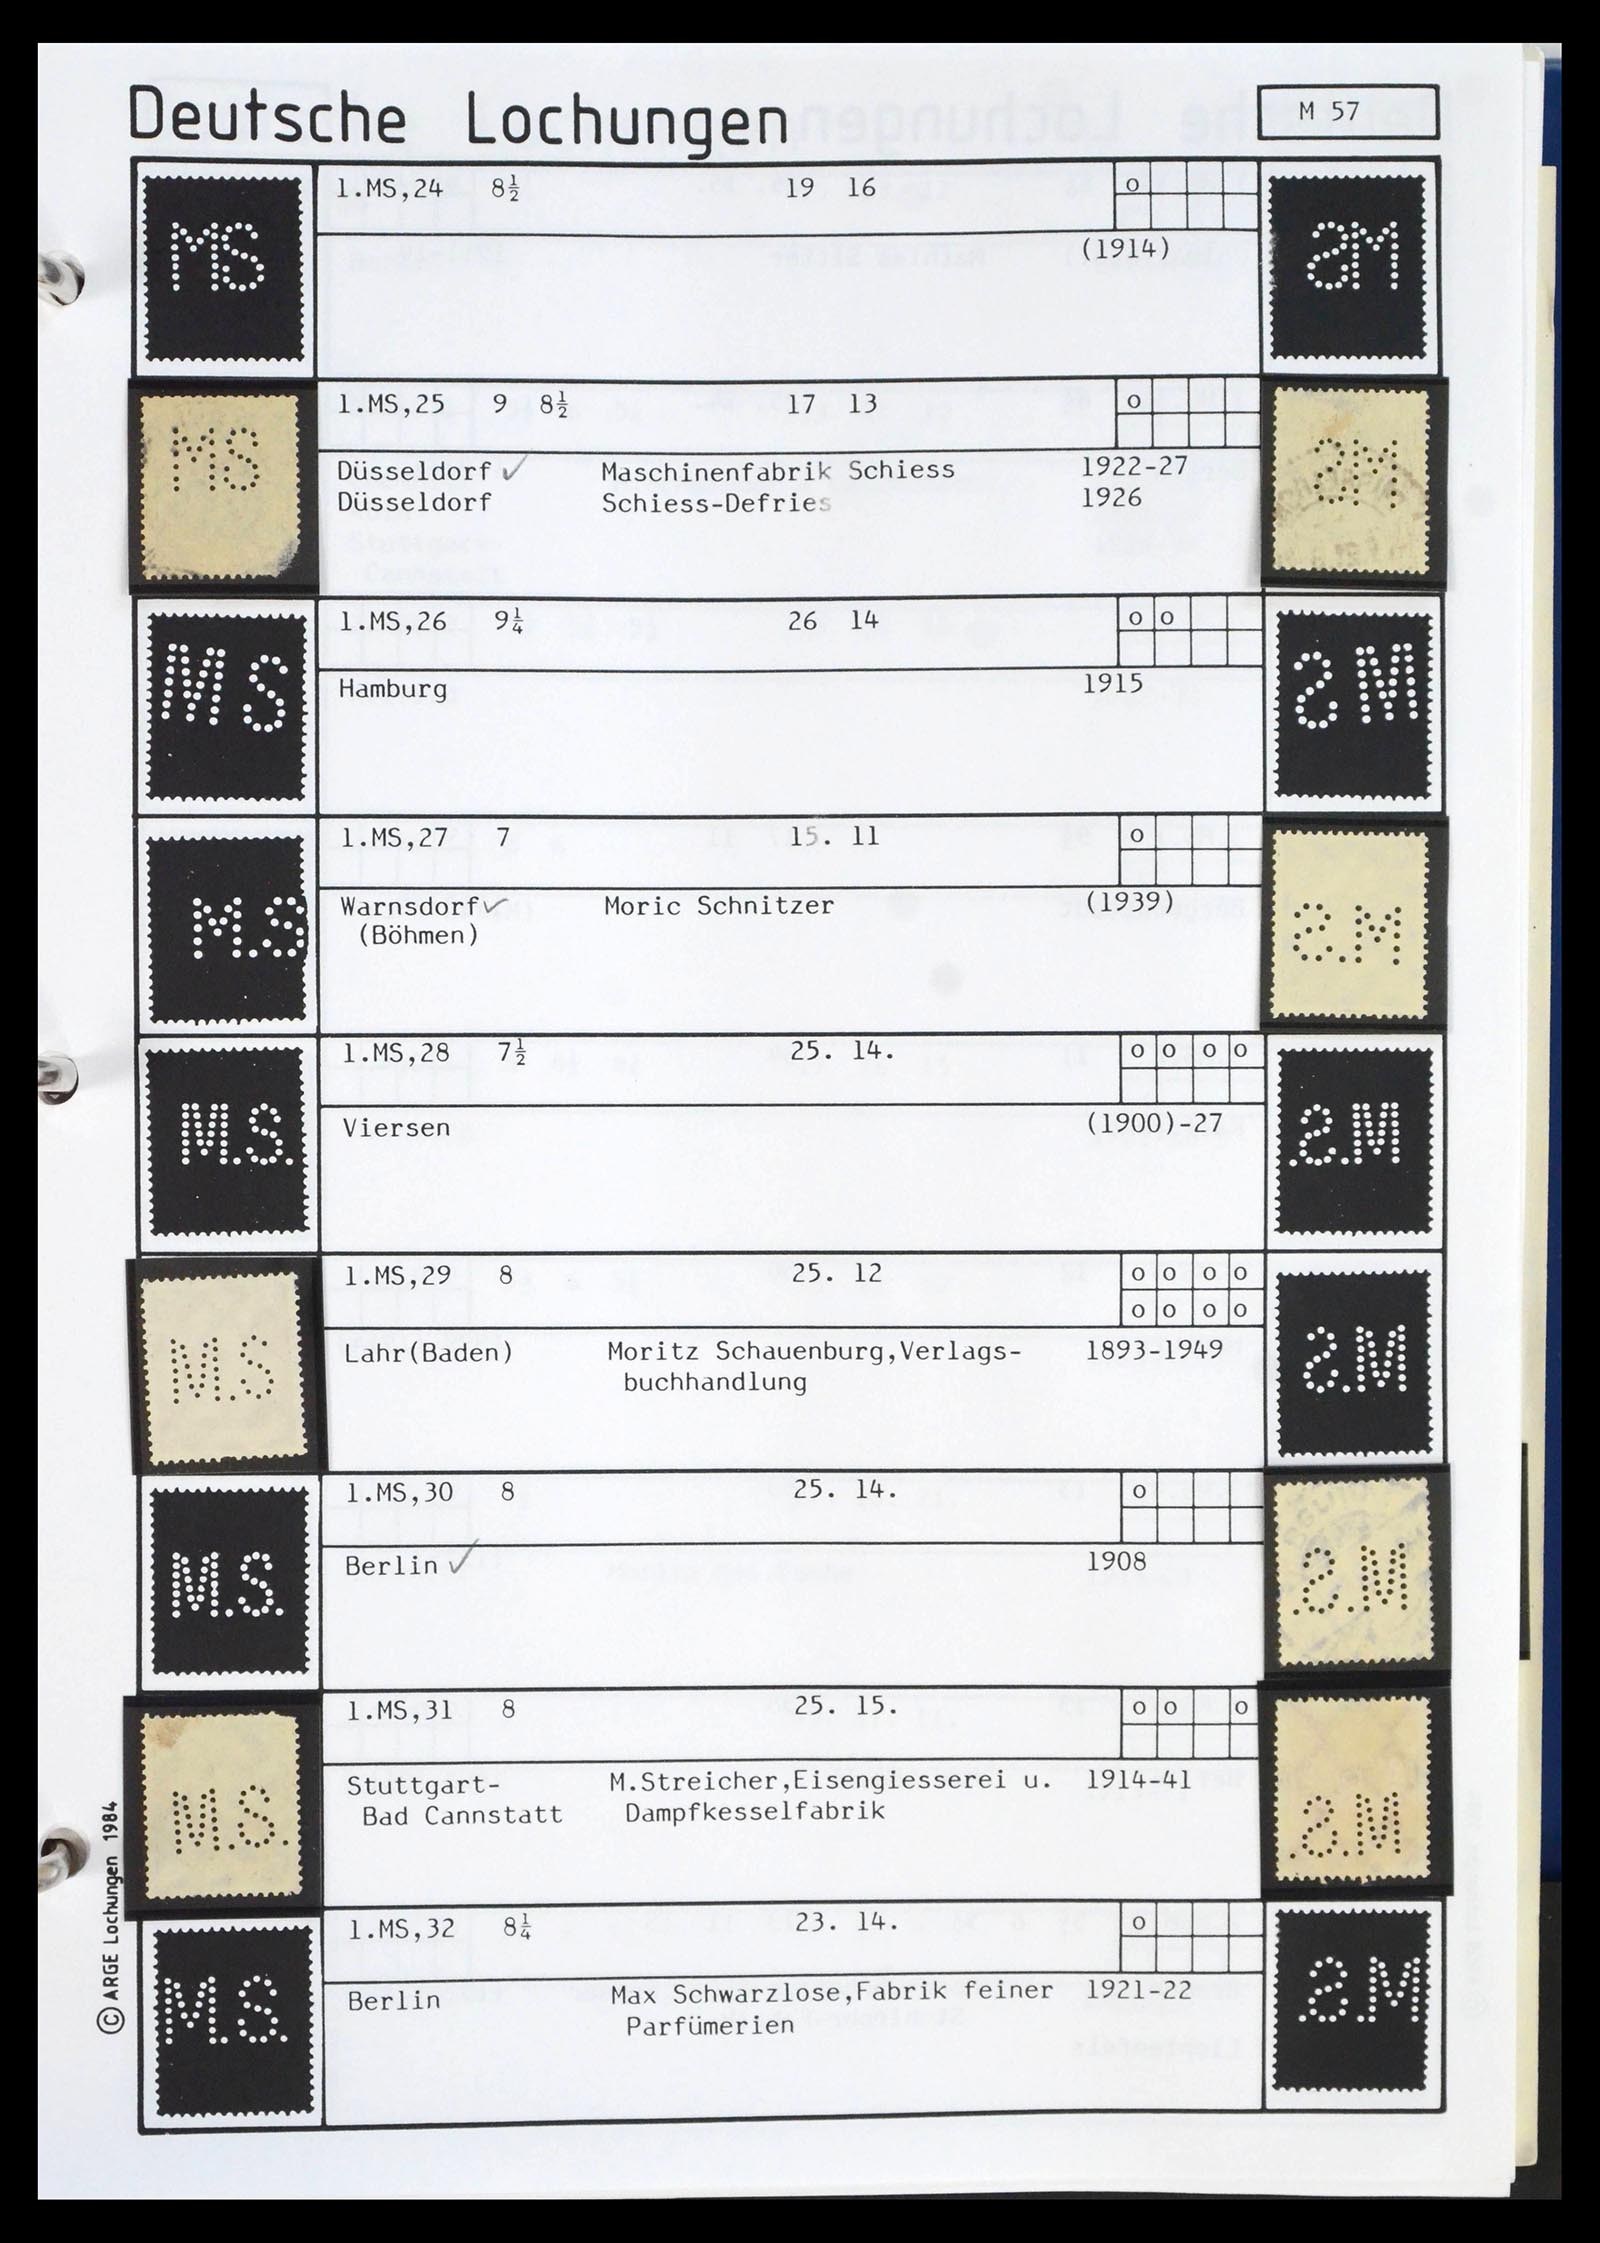 Deutsche Lochungen
M 57
1.MS,24 8½ 19 16 o
(1914)
MS
MS
1.MS,25 9 8½ 17 13 o
Düsseldorf ✓ Maschinenfabrik Schiess 1922-27
Düsseldorf Schiess-Defries 1926
MS
MS
1.MS,26 9¼ 26 14 o o
Hamburg 1915
MS
MS
1.MS,27 7 15. 11 o
Warnsdorf ✓ Moric Schnitzer (1939)
(Böhmen)
M.S
M.S
1.MS,28 7½ 25. 14. o o o o
Viersen (1900)-27
M.S.
M.S.
1.MS,29 8 25. 12 o o o o
o o o o
Lahr(Baden) Moritz Schauenburg,Verlags- 1893-1949
buchhandlung
M.S
M.S
1.MS,30 8 25. 14. o
Berlin ✓ 1908
M.S.
M.S.
1.MS,31 8 25. 15. o o o
Stuttgart- M.Streicher,Eisengiesserei u. 1914-41
Bad Cannstatt Dampfkesselfabrik
M.S.
M.S.
1.MS,32 8¼ 23. 14. o
Berlin Max Schwarzlose,Fabrik feiner 1921-22
Parfümerien
M.S.
M.S.
© ARGE Lochungen 1984